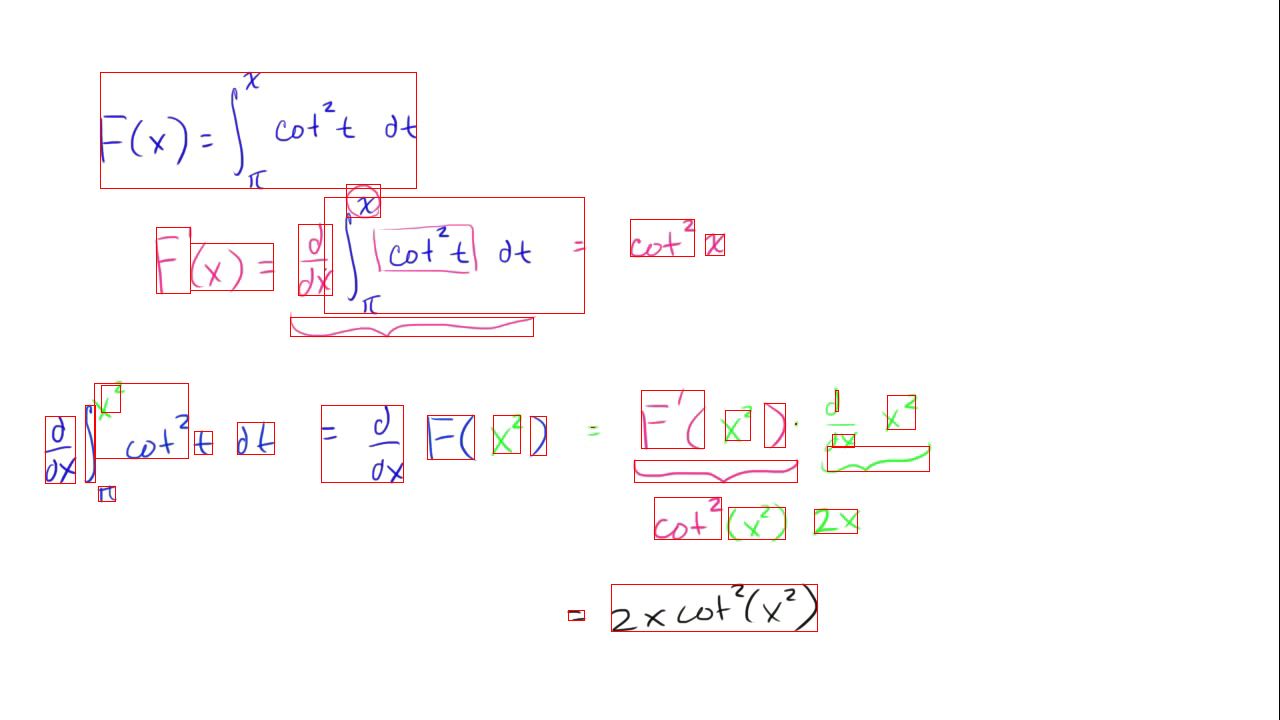 F(x) = ∫_π^x cot²t dt
F'(x) = d/dx ∫_π^x cot²t dt = cot² x
d/dx ∫_π^{x²} cot² t dt = d/dx F(x²) = F'(x²) · d/dx x²
cot²(x²) 2x
= 2x cot²(x²)